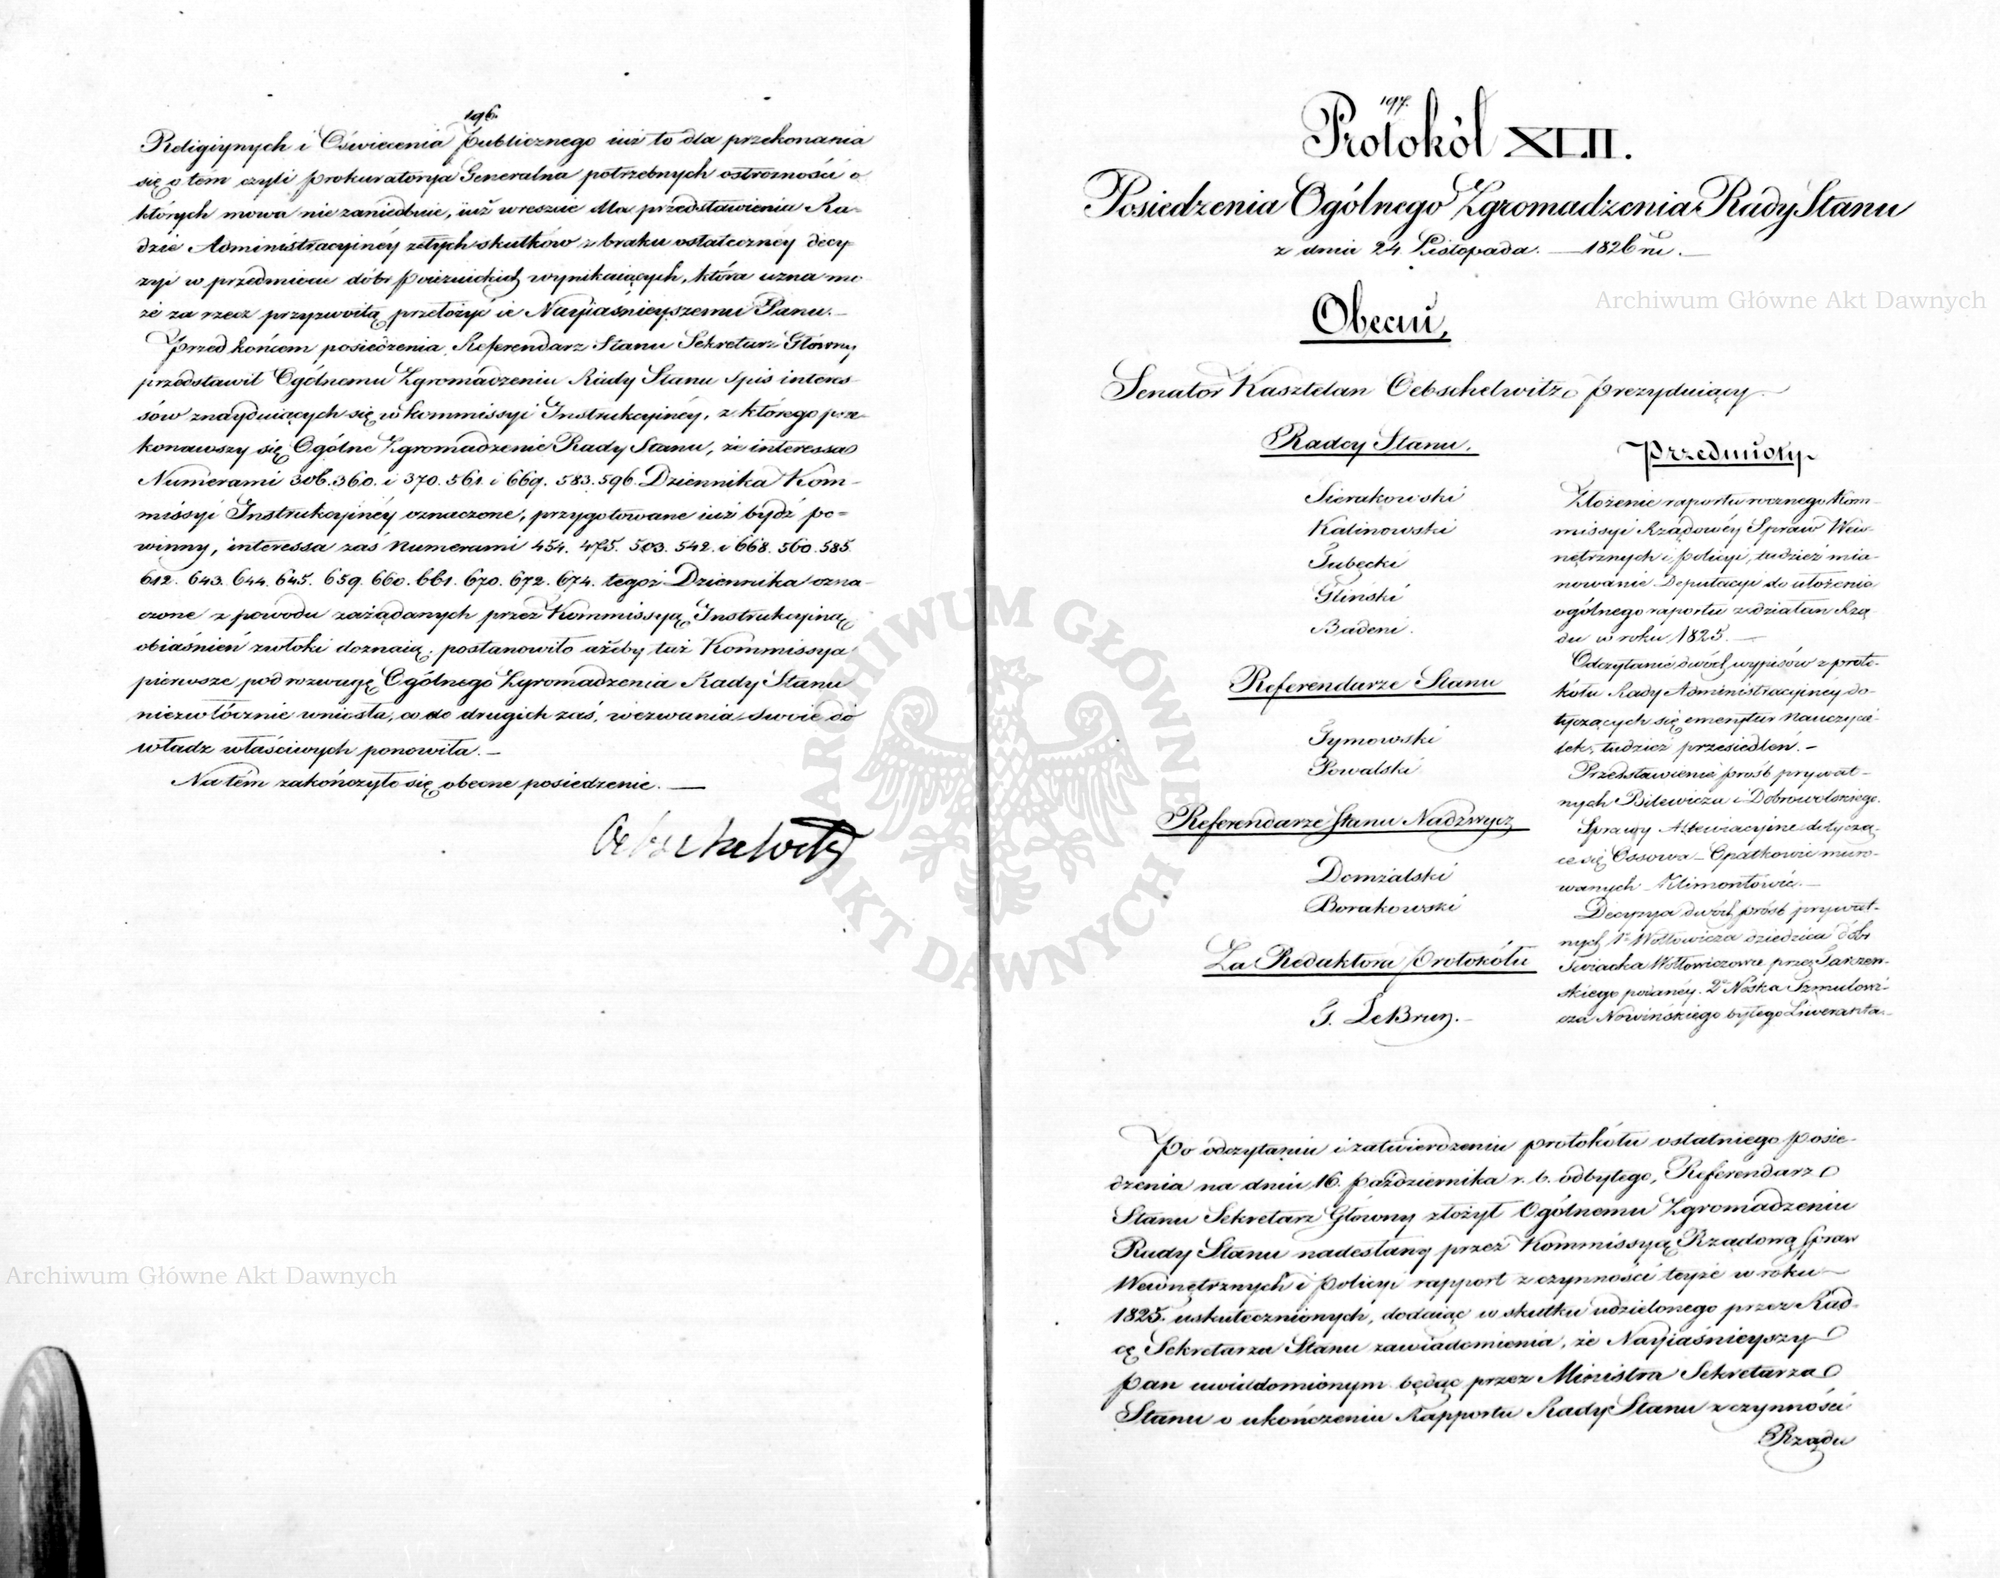 196.
Religiynych i Oświecenia Publicznego iuż to dla przekonania
się o tém czyli Prokuratorya Generalna potrzebnych ostrożności o
których mowa nie zaniedbuie, iuż wreszcie dla przedstawienia Ra-
dzie Administracyinéy zétych skutków z braku ostatecznéy decy
zyi w przedmiocie dóbr wynikaiących, która uzna mo-
że za rzecz przyzwoitą przełożyć ie Nayiaśnieyszemu Panu. —
Przed końcem posiedzenia Referendarz Stanu Sekretarz Główny
przedstawił Ogólnemu Zgromadzeniu Rady Stanu spis interes-
sów znayduiących się w Kommissyi Instrukcyinéy, z którego prze-
konawszy się Ogólne Zgromadzenie Rady Stanu, że interessa
Numerami 306. 360. i 370. 561. i 669. 583. 596. Dziennika Kom-
missyi Instrukcyinéy oznaczone, przygotowane iuż bydź po-
winny, interessa zaś Numerami 454. 475. 503. 542. i 668. 560. 585.
612. 643. 644. 645. 659. 660. 661. 670. 672. 674. tegoż Dziennika ozna-
czone z powodu zażądanych przez Kommissyą Instrukcyiną
obiaśnień zwłoki doznaią; postanowiło ażeby taż Kommissya
pierwsze pod rozwagę Ogólnego Zgromadzenia Rady Stanu
niezwłócznie wniosła, co do drugich zaś, wezwania swoie do
władz właściwych ponowiła. —
Na tém zakończyło się obecne posiedzenie. —
Oebschelwitz
197.
Protokół XLII.
Posiedzenia Ogólnego Zgromadzenia Rady Stanu
z dnia 24 Listopada. — 1826 ru. —
Obecni,
Senator Kasztelan Oebschelwitz Prezyduiący
Radcy Stanu.
Sierakowski
Kalinowski
Lubęcki
Gliński
Badeni.
Referendarze Stanu
Tymowski
Kowalski
Referendarze Stanu Nadzwycz
Domżalski
Borakowski
Za Redaktora Protokółu
J. LeBrun. —
Przedmioty.
Złożenie raportu rocznego Kom-
missyi Rządowéy Spraw Wew-
nętrznych i Policyi, tudzież mia-
nowanie Deputacyi do ułożenia
ogólnego raportu z działań Rzą-
du w roku 1825. —
Odczytanie dwóch wypisów z proto-
kółu Rady Administracyinéy do-
tyczących się emerytur Nauczycie-
lek, tudzież przesiedleń. —
Przedstawienie prośb prywat-
nych Bilewicza i Dobrowolskiego.
Sprawy Allewiacyine dotyczą-
ce się Ossowa — Opatkowic muro-
wanych — Klimontowic. —
Decyzya dwóch próśb prywat-
nych 1o Wołłowicza dziedzica dóbr
Swiacka Wołłowiczowa przez Jarzem-
skiego podanéy. 2o Noska Szmulowi-
cza Nowińskiego byłego Liweranta. —
Po odczytaniu i zatwierdzeniu protokółu ostatniego posie-
dzenia na dniu 16. Października r. b. odbytego, Referendarz
Stanu Sekretarz Główny złożył Ogólnemu Zgromadzeniu
Rady Stanu nadesłany przez Kommissyą Rządową Spraw
Wewnętrznych i Policyi rapport z czynności teyże w roku
1825. uskutecznionych, dodaiąc w skutku udzielonego przez Rad-
cę Sekretarza Stanu zawiadomienia, że Nayiaśnieyszy
Pan uwiadomionym będąc przez Ministra Sekretarza
Stanu o ukończeniu Rapportu Rady Stanu z czynności
Rządu
Archiwum Główne Akt Dawnych
Archiwum Główne Akt Dawnych
ARCHIWUM GŁÓWNE AKT DAWNYCH